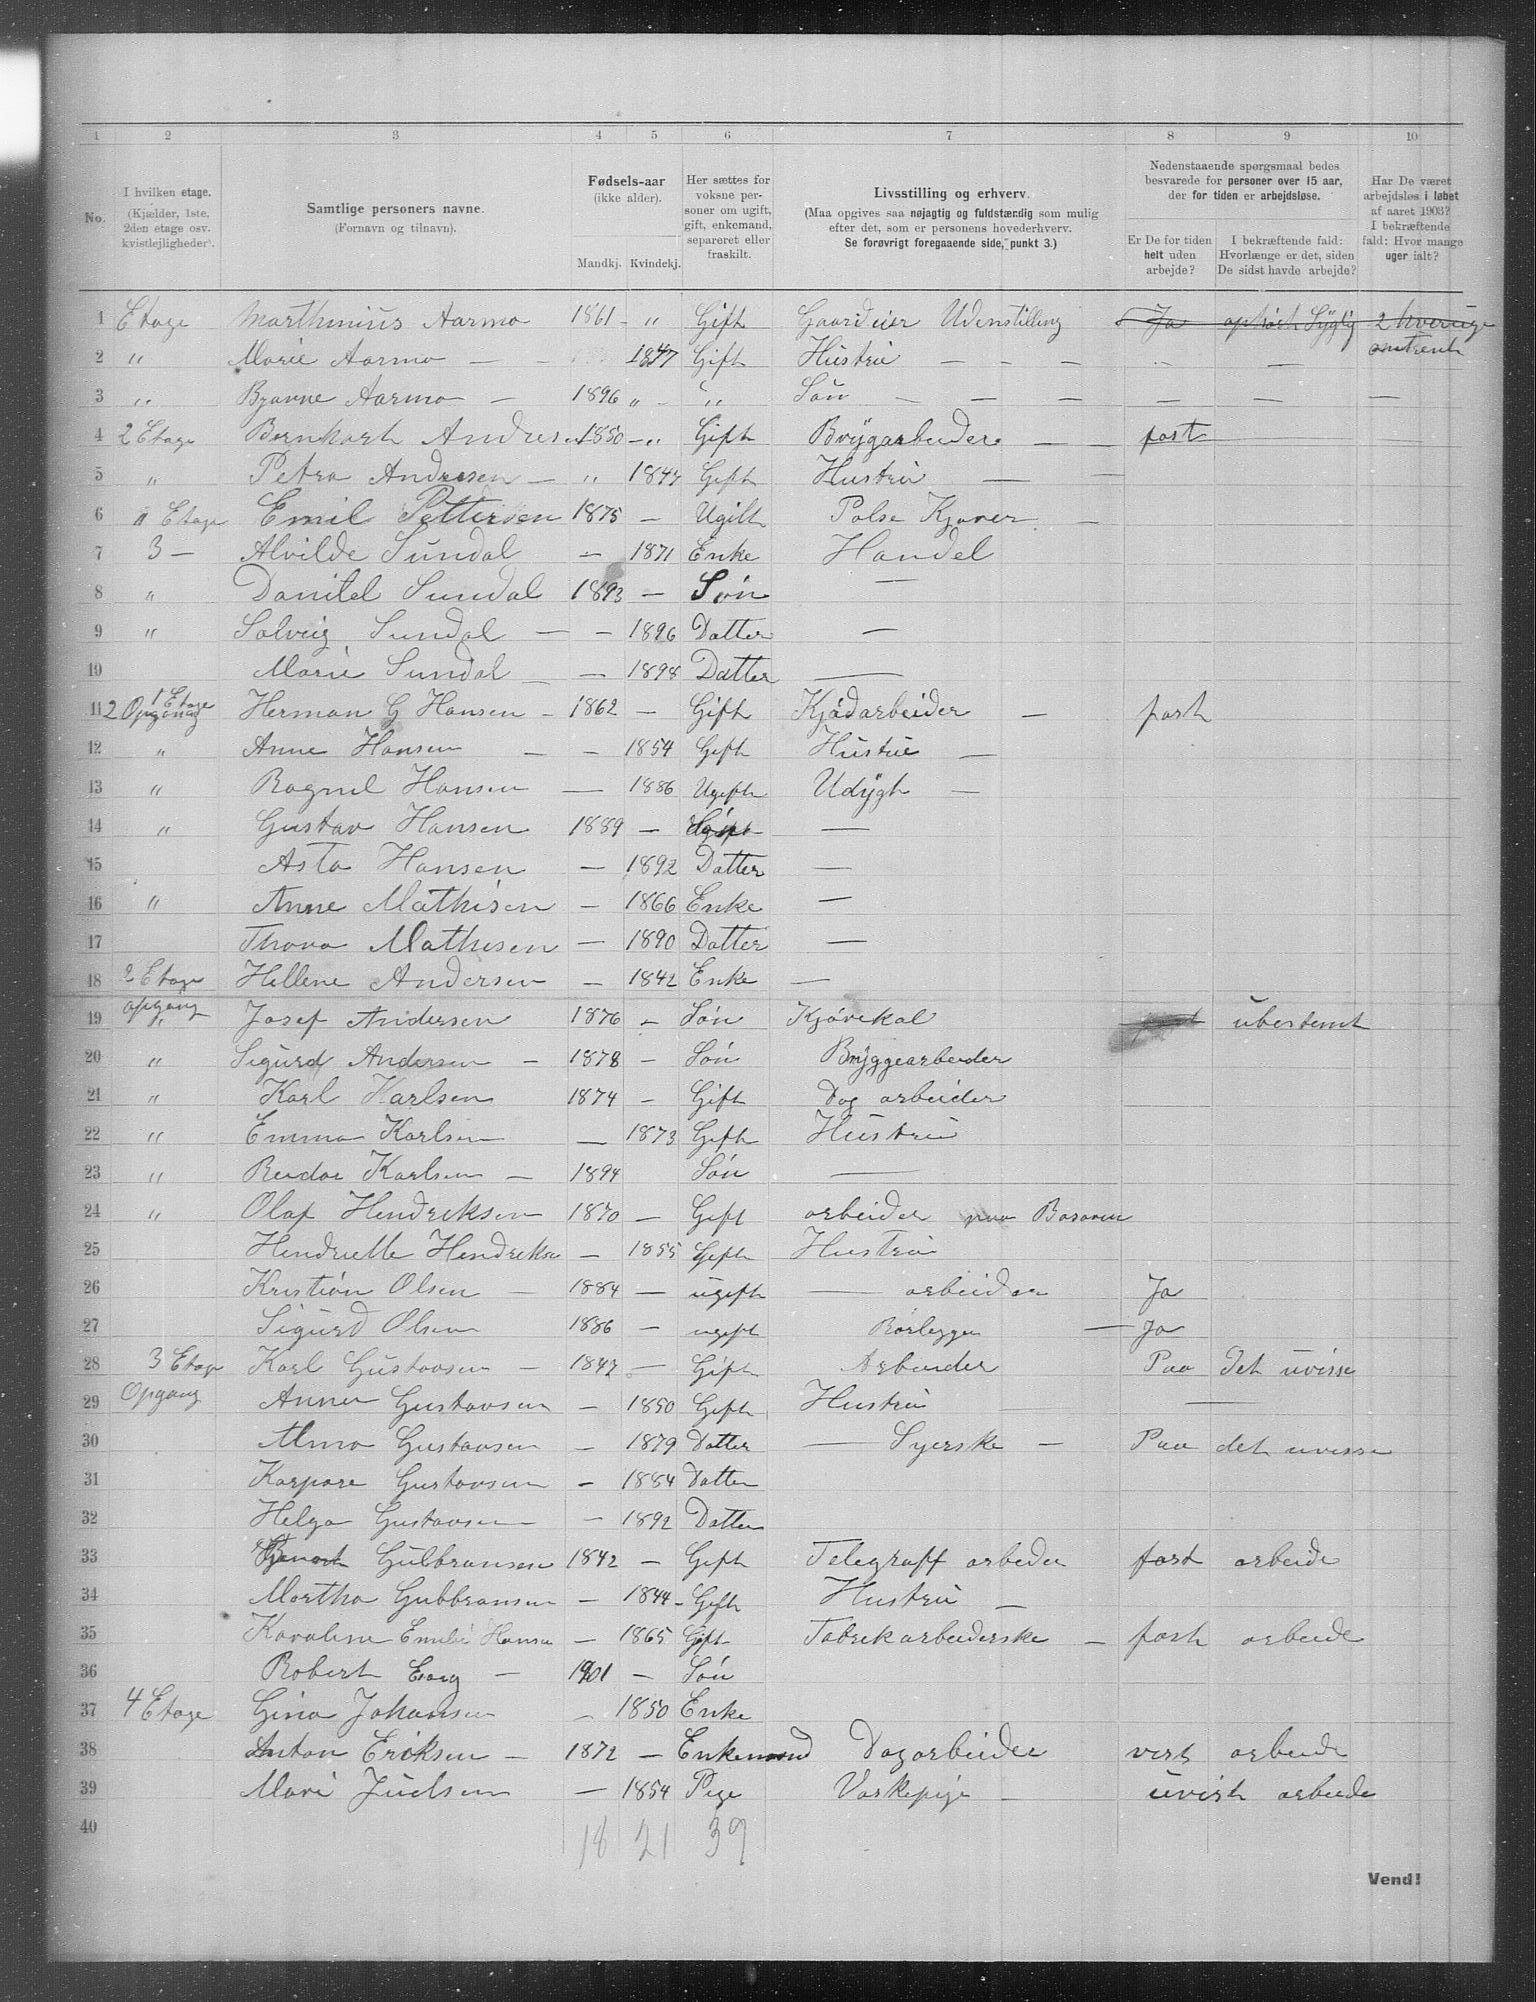 1 2 3 4 5 6 7 8 9 10
No.
I hvilken etage.
(Kjælder, 1ste,
2den etage osv.
kvistlejligheder).
Samtlige personers navne.
(Fornavn og tilnavn).
Fødsels-aar
(ikke alder).
Mandkj. Kvindekj.
Her sættes for
voksne per-
soner om ugift,
gift, enkemand,
separeret eller
fraskilt.
Livsstilling og erhverv.
(Maa opgives saa nøjagtig og fuldstændig som mulig
efter det, som er personens hovederhverv.
Se forøvrigt foregaaende side, punkt 3.)
Nedenstaaende spørgsmaal bedes
besvarede for personer over 15 aar,
der for tiden er arbejdsløse.
Er De for tiden
helt uden
arbejde?
I bekræftende fald:
Hvorlænge er det, siden
De sidst havde arbejde?
Har De været
arbejdsløs i løbet
af aaret 1903?
I bekræftende
fald: Hvor mange
uger ialt?
1 Etage Marthinius Aarmo 1861 - " Gift Gaardeier Udenstilling Ja ophört Syglig 2 omtrent
2 " Marie Aarmo — 1847 Gift Hustru — — — — —
3 " Bjarne Aarmo — 1896 " — " Sön — — — — — —
4 2 Etage Bernhart Andresen 1850 — " Gift Brygarbeider — fast
5 " Petra Andresen — " 1847 Gift Hustru — —
6 " Etage Emil Pettersen 1875 — Ugift Polse Kjover —
7 3 — Alvilde Sundal — 1871 Enke Handel
8 " Danitel Sundal 1893 — Sön —
9 " Solveig Sundal — — 1896 Datter —
10 Marie Sundal — 1898 Datter —
11 2 Opgang 1 Etage Herman G Hansen — 1862 — Gift Kjödarbeider — fast
12 " Anne Hansen — — 1854 Gift Hustru —
13 " Ragnil Hansen — 1886 Ugift Udygt —
14 " Gustav Hansen 1889 — —
15 Asta Hansen — 1892 Datter —
16 " Anne Mathisen — 1866 Enke —
17 Thora Mathisen — 1890 Datter —
18 2 Etage Hellene Andersen — 1842 Enke —
19 opgang " Josef Andersen 1876 — Sön Kjörekal fast ubestemt
20 " Sigurd Andersen — 1878 — Sön Bryggearbeider
21 " Karl Karlsen 1874 — Gift Dag arbeider
22 " Emma Karlsen — 1873 Gift Hustru
23 " Reidar Karlsen — 1894 Sön —
24 " Olaf Hendreksen 1870 — Gift arbeider paa Basaren
25 Hendrette Hendreksen — 1855 Gift Hustru
26 Kristian Olsen — 1884 — ugift — arbeider Ja
27 Sigurd Olsen 1886 — ugift Rörlegger — Ja
28 3 Etage Karl Gustavsen — 1847 — Gift Arbeider Paa det uvisse
29 Opgang Anna Gustavsen — 1850 Gift Hustru — —
30 Alma Gustavsen — 1879 Datter — Syerske — Paa det uvisse
31 Kaspara Gustavsen — 1884 Datter
32 Helga Gustavsen — 1892 Datter
33 Gulbransen 1842 — Gift Telegraff arbeder fast arbeide
34 Martha Gulbbransen — 1844 - Gift Hustru —
35 Karoline Emilie Hansen — 1865 Gift Fabrikarbeiderske — fast arbeide
36 Robert Earg — 1901 — Sön
37 4 Etage Gina Johansen — 1850 Enke
38 Anton Eriksen — 1872 — Enkemand Dagarbeider vist arbeide
39 Mari Juelsen — 1854 Pige Vaskepige — uvist arbeide
40
18 21 39
Vend!